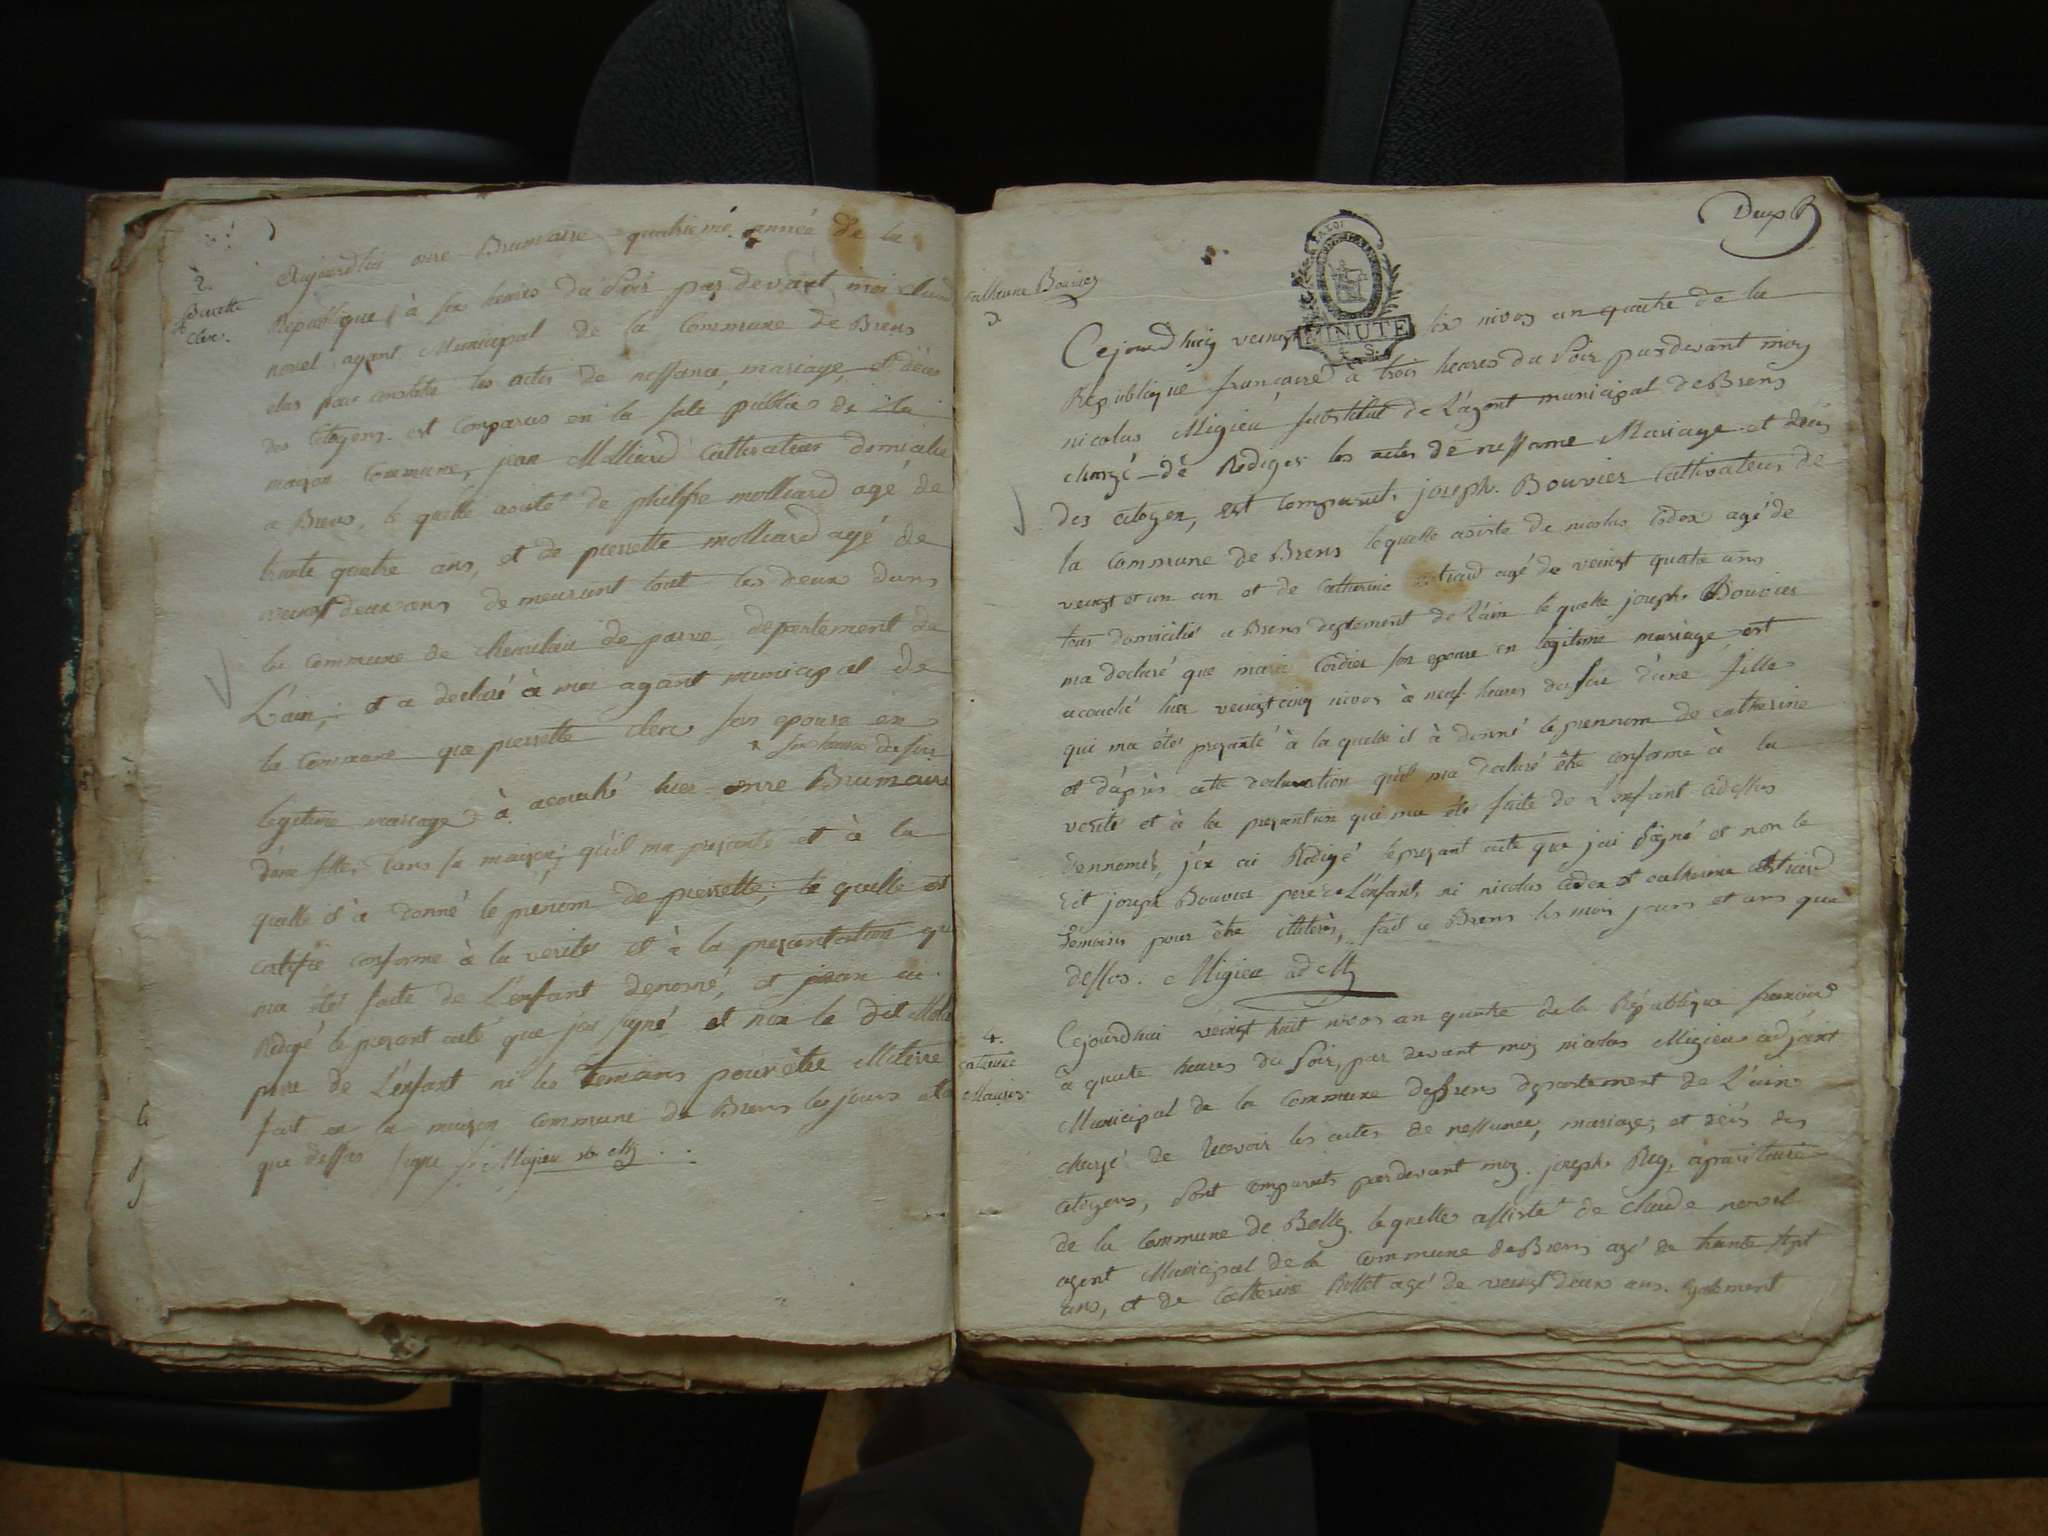 2.
pierrette
Clerc.
Aujourdhui onze Brumaire quatrieme année de la
Republique, à six heures du Soir par devant moi claud
novel agant Municipal de la Commune de Brens
elus pour constater les actes de nessance, mariage, et déces
des Citoyens. est Comparus en la sale publice de la
maison Commune, jean Molliard Cultivateur domicilié
a Brens, le quelle asisté de philipe molliard agé de
trante quatre ans, et de pierrette molliard agé de
veingt deux ans demeurant tout les deux dans
la Commune de de parve, departement de
L'ain, et a declaré à moi agant municipal de
la Commune que pierrette clerc son epouse en
six heures du soir
legitime mariage à acouché hier onze Brumaire
d'une fille, dans sa maison, qu'il ma presante et à la
quelle il à donné le prenom de pierrette, le quelle
certifié conforme à la verité et à la presentation qui
ma été faite de L'enfant denomé, et jean ai
Redigé le presant acte que jai signé et non le dit Mollia
pere de L'enfant ni les temains pour être illiterre
fait en la maison commune de Brens les jours et an
que dessus signe Migieu
Deux
Catherine Bouvier
3
LA LOI
MINUTE
Cejourdhuy veingt six nivos an quatre de la
Republique française à trois heures du Soir pardevant moy
nicolas Migieu substitut de L'agent municipal de Brens
chargé de Rediger les actes de nessance Mariage et déces
des citoyen, est comparut joseph Bouvier cultivateur de
la commune de Brens lequelle asiste de nicolas Codex agé de
veingt et un an et de Catherine agé de veingt quatre ans
tous domicilié a Brens depertement de L'ain le quelle joseph Bouvier
ma declaré que marie Cordier son epouse en legitime mariage est
acouché hier veingt cinq nivos à neuf heures du soir d'une fille
qui ma été presanté à la quelle il à donné le prennom de catherine
et d'après cette declaration qu'il ma declaré être conforme à la
verité et à la presantion qui ma été faite de L'enfant cidessus
dennomés, j'ex ai Redigé le presant acte que jai signé et non le
dit joseph Bouvier pere de L'enfant, ni nicolas Codex et catherine
temains pour être illiterés, fait a Brens les mois jours et ans que
dessus. Migieu adM
4.
Catherine
Mauris.
Cejourdhui veingt huit nivos an quatre de la République francaise
à quatre heures du Soir, par devant moy nicolas Migieu adjoint
Municipal de la Commune de Brens departement de L'ain
chargé de Recevoir les actes de nessance, mariage, et décés des
citoyens, sont comparuts pardevant moy. joseph Rey,
de la Commune de Belley lequelle assisté de claude novel
agent Municipal de la commune de Brens agé de trante sept
ans, et de Catherine Rollet agé de veingt deux ans. egalement